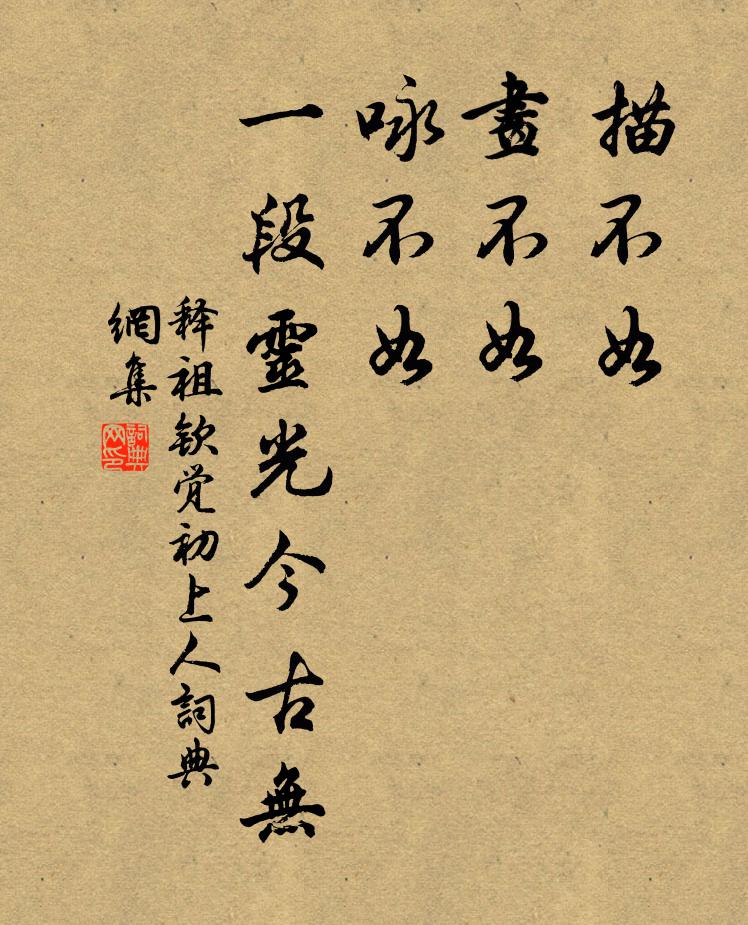 描不如
畫不如
咏不如
一段靈光今古無
释祖钦觉初上人詞典
網集
詞典
网印